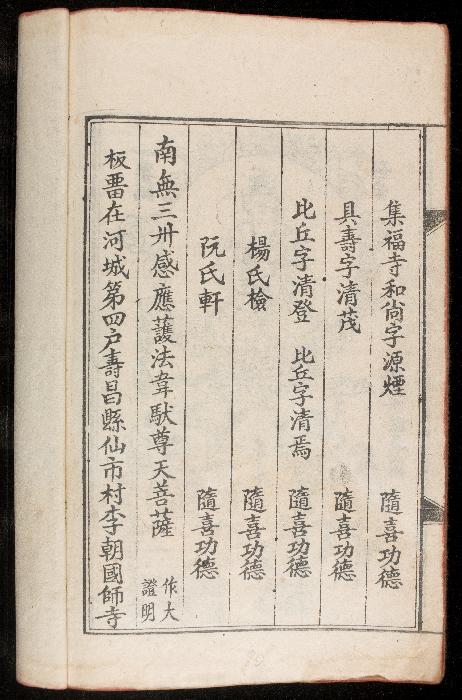 集福寺和尚字源煙　隨喜功德
具壽字清茂　隨喜功德
比丘字清登　比丘字清焉　隨喜功德
楊氏檢　隨喜功德
阮氏軒　隨喜功德
南無三卅感應護法韋馱尊天菩薩　作大證明
板畱在河城第四户壽昌縣仙市村李朝國師寺